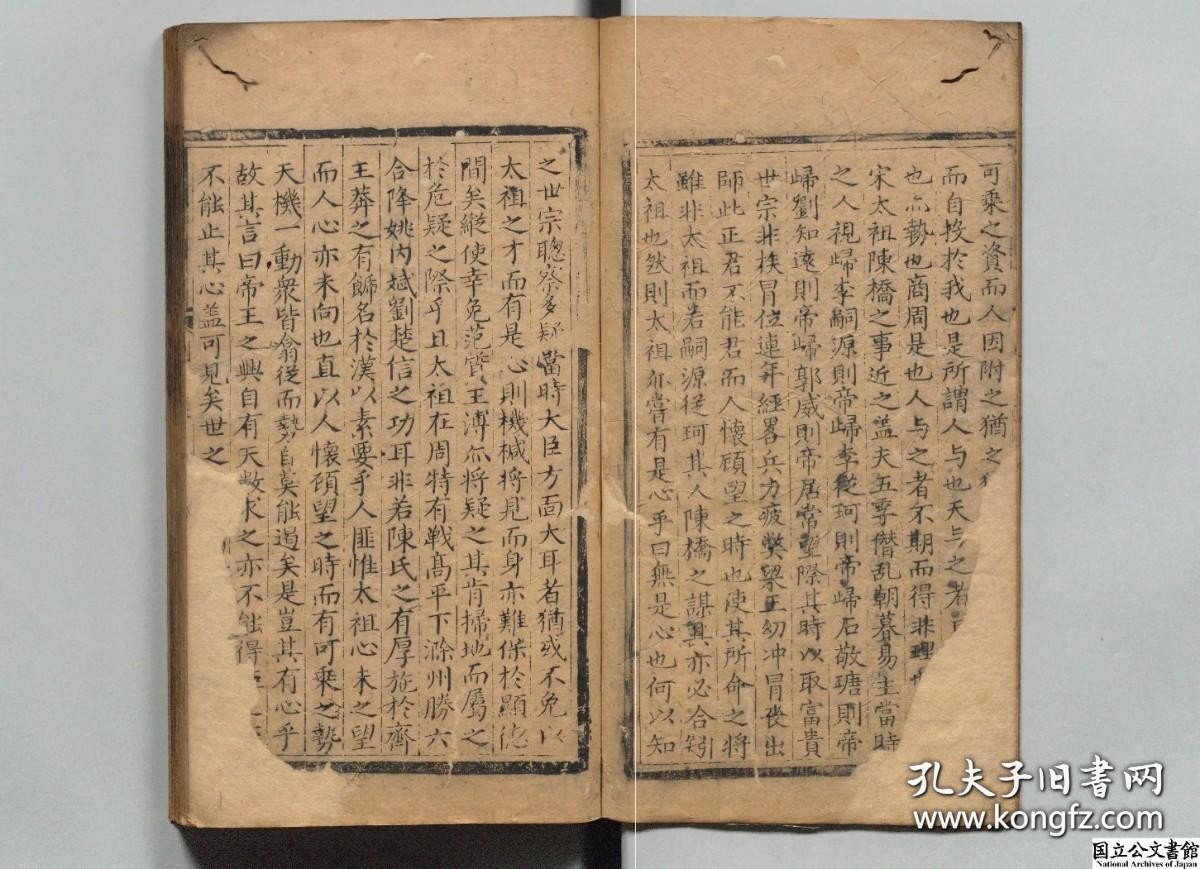 可乘之資而人因附之猶之
而自投於我也是所謂人与也天与之者
也亦勢也商周是也人与之者不期而得非理也
宋太祖陳橋之事近之盖夫五季僭乱朝暮易主當時
之人視帰李嗣源則帝帰李從珂則帝帰石敬瑭則帝
帰劉知遠則帝帰郭威則帝居常塱際其時以取富貴
世宗非挨冒位連年經畧兵力疲獘梁王幼冲冒丧出
師此正君不能君而人懷頋望之時也使其所命之將
雖非太祖而若嗣源從珂其人陳橋之謀其亦必合矧
太祖也然則太祖亦嘗有是心乎曰無是心也何以知
之世宗聰察多疑當時大臣方面大耳者猶或不免以
太祖之才而有是心則機械將見而身亦難保於顯德
間矣縱使幸免范質王溥亦將疑之其肯掃地而屬之
於危疑之際乎且太祖在周特有戰髙平下滁州勝六
合降姚内斌劉楚信之功耳非若陳氏之有厚施於齊
王莽之有飾名於漢以素要乎人匪惟太祖心未之望
而人心亦未向也直以人懷頋望之時而有可乘之勢
天機一動衆皆翕從而勢自莫能遏矣是豈其有心乎
故其言曰帝王之興自有天数求之亦不能得
不能止其心盖可見矣世之
孔夫子旧书网
www.kongfz.com
国立公文書館
National Archives of Japan